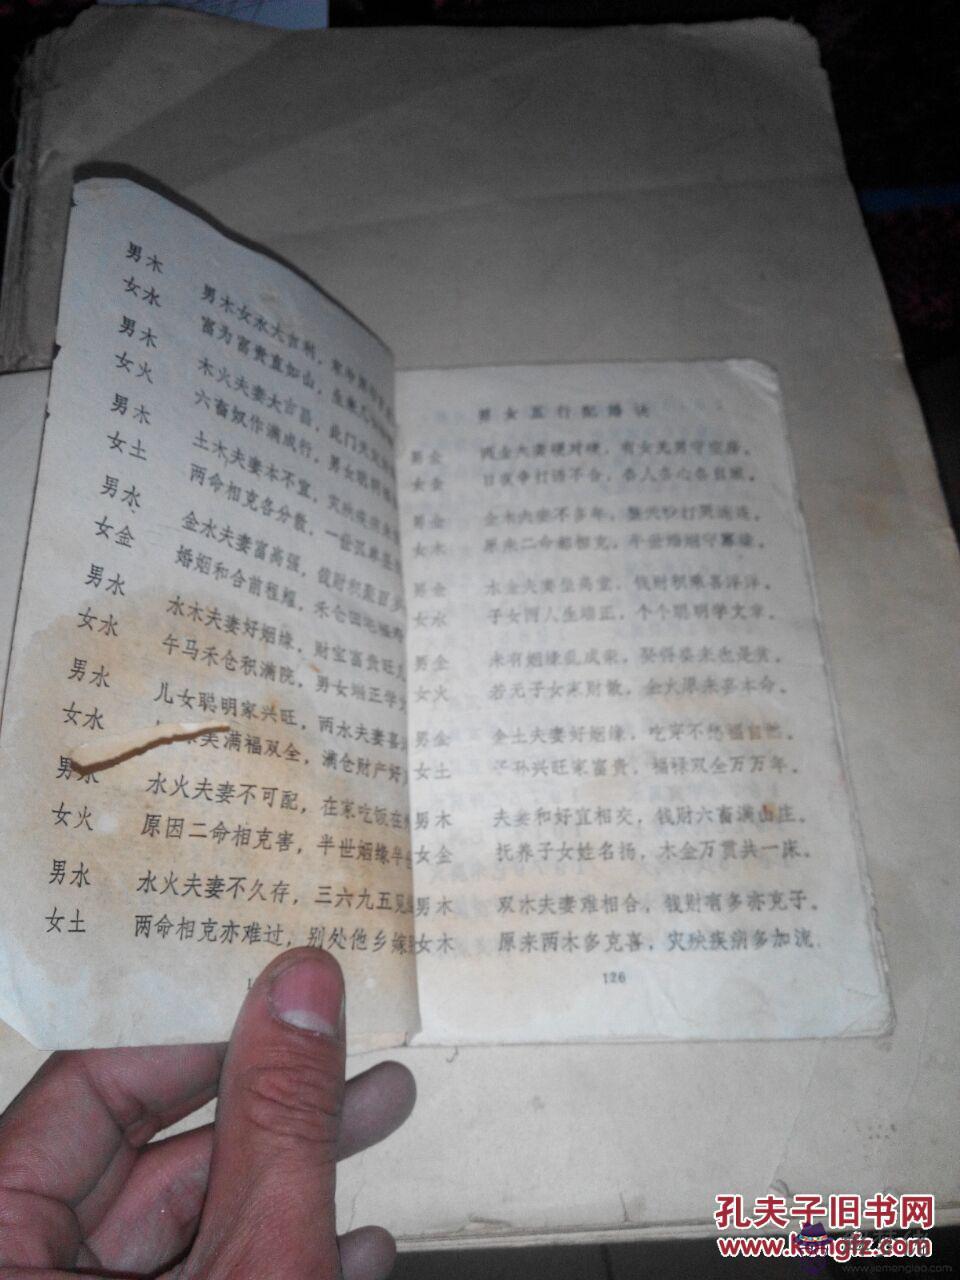 男木
女水 男木女水大吉利，
富为富贵直如山，
男木
女火 木火夫妻大吉昌，此门天
六畜奴作满成行，男女聪明
男木
女土 土木夫妻本不宜，灾殃疾
两命相克各分散，一世孤
男水
女金 金水夫妻富高强，钱财积聚百
婚姻和合前程耀，禾仓田宅福寿
男水
女水 水木夫妻好姻缘，财宝富贵旺
午马禾仓积满院，男女端正学
男水
女水 儿女聪明家兴旺，两水夫妻喜
美满福双全，满仓财产好
男水
女火 水火夫妻不可配，在家吃饭在
原因二命相克害，半世姻缘半
男水
女土 水火夫妻不久存，三六九五见
两命相克亦难过，别处他乡嫁
男女五行配婚诀
男金 两金夫妻硬对硬，有女无男守空房。
女金 日夜争打语不合，各人各心各自
男金 金木夫妻不多年，整天吵打哭连连。
女木 原来二命都相克，半世婚姻守寡
男金 水金夫妻坐高堂，钱财积聚喜洋洋。
女水 子女两人生端正，个个聪明学文章。
男金 未有姻缘乱成亲，娶得妻来也是贫。
女火 若无子女家财散，金火原来害本命。
男金 金土夫妻好姻缘，吃穿不愁福自然。
女土 子孙兴旺家富贵，福禄双全万万年。
男木 夫妻和好宜相交，钱财六畜满山庄。
女金 抚养子女姓名扬，木金万贯共一床。
男木 双木夫妻难相合，钱财有多亦克子。
女木 原来两木多克喜，灾殃疾病多加
126
孔夫子旧书网
www.kongfz.com
www.jiemengleo.com